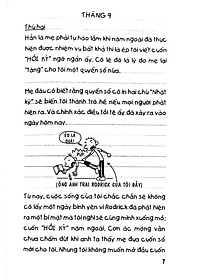 THÁNG 9
Thứ hai
Hẳn là mẹ phải tự hào lắm khi năm ngoái đã thực
hiện được nhiệm vụ bất khả thi là ép tôi viết cuốn
"HỒI KÝ" ngớ ngẩn ấy. Có lẽ đó là lý do mẹ lại
"tặng" cho tôi một quyển sổ nữa.
Mẹ đâu có biết rằng quyển sổ có in hai chữ "Nhật
ký" sẽ biến tôi thành trò hề nếu mọi người phát
hiện ra. Và chính xác điều tồi tệ ấy đã xảy ra vào
ngày hôm nay.
ẺO LẢ QUÁ!
(ÔNG ANH TRAI RODRICK CỦA TÔI ĐẤY)
Từ nay, cuộc sống của tôi chắc chắn sẽ không
có lấy một ngày bình yên vì Rodrick đã phát hiện
ra một bí mật mà tôi nghĩ sẽ cùng mình xuống mồ:
cuốn "HỒI KÝ" năm ngoái. Cơn ác mộng vẫn
chưa chấm dứt khi anh ta thấy mẹ đưa cuốn sổ
mới cho tôi. Nhưng tôi không muốn mở đầu cuốn
7